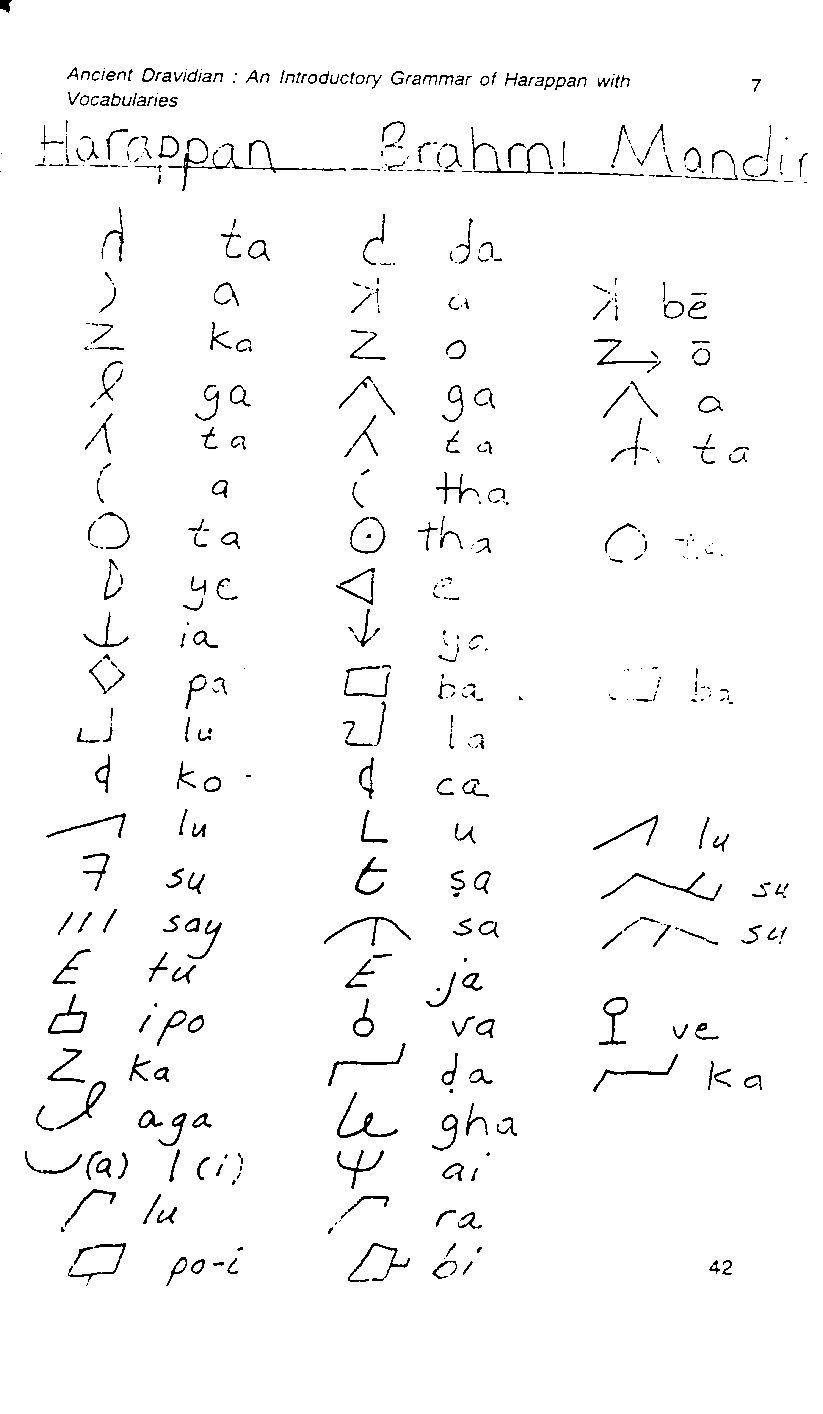 Ancient Dravidian : An Introductory Grammar of Harappan with 7
Vocabularies
Harappan Brahmi Mandir
ta da
a a bē
ka o ō
ga ga a
ta ta ta
a tha
ta tha ta
ye e
ia ya
pa ba ba
lu la
ko ca
lu u lu
su ṣa su
say sa su
tu ja
ipo va ve
ka ḍa ka
aga gha
(a) l(i) ai
lu ra
po-i bi
42